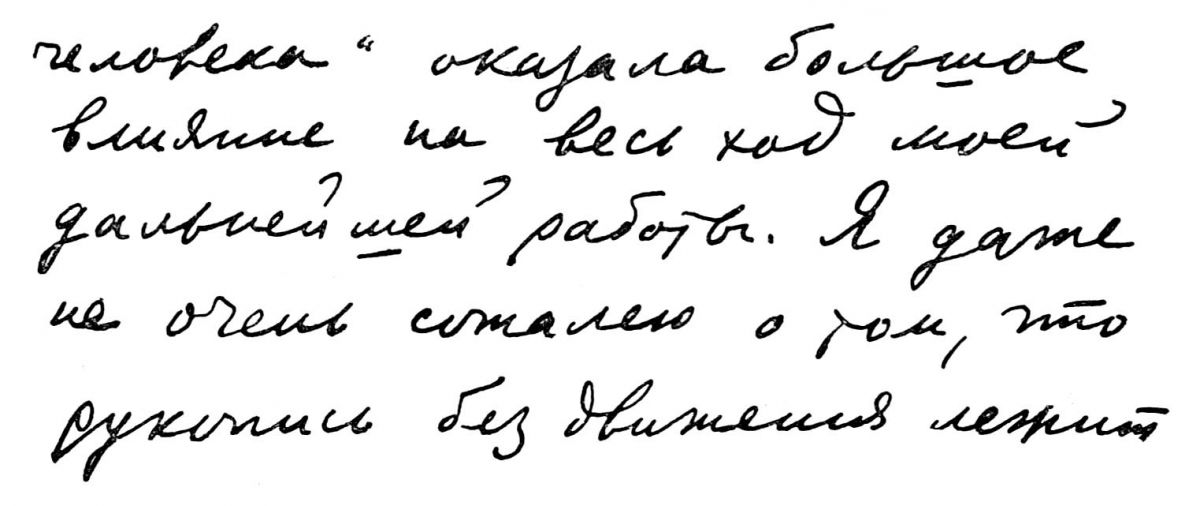 человека“ оказала большое
влияние на весь ход моей
дальнейшей работы. Я даже
не очень сожалею о том, что
рукопись без движения лежит